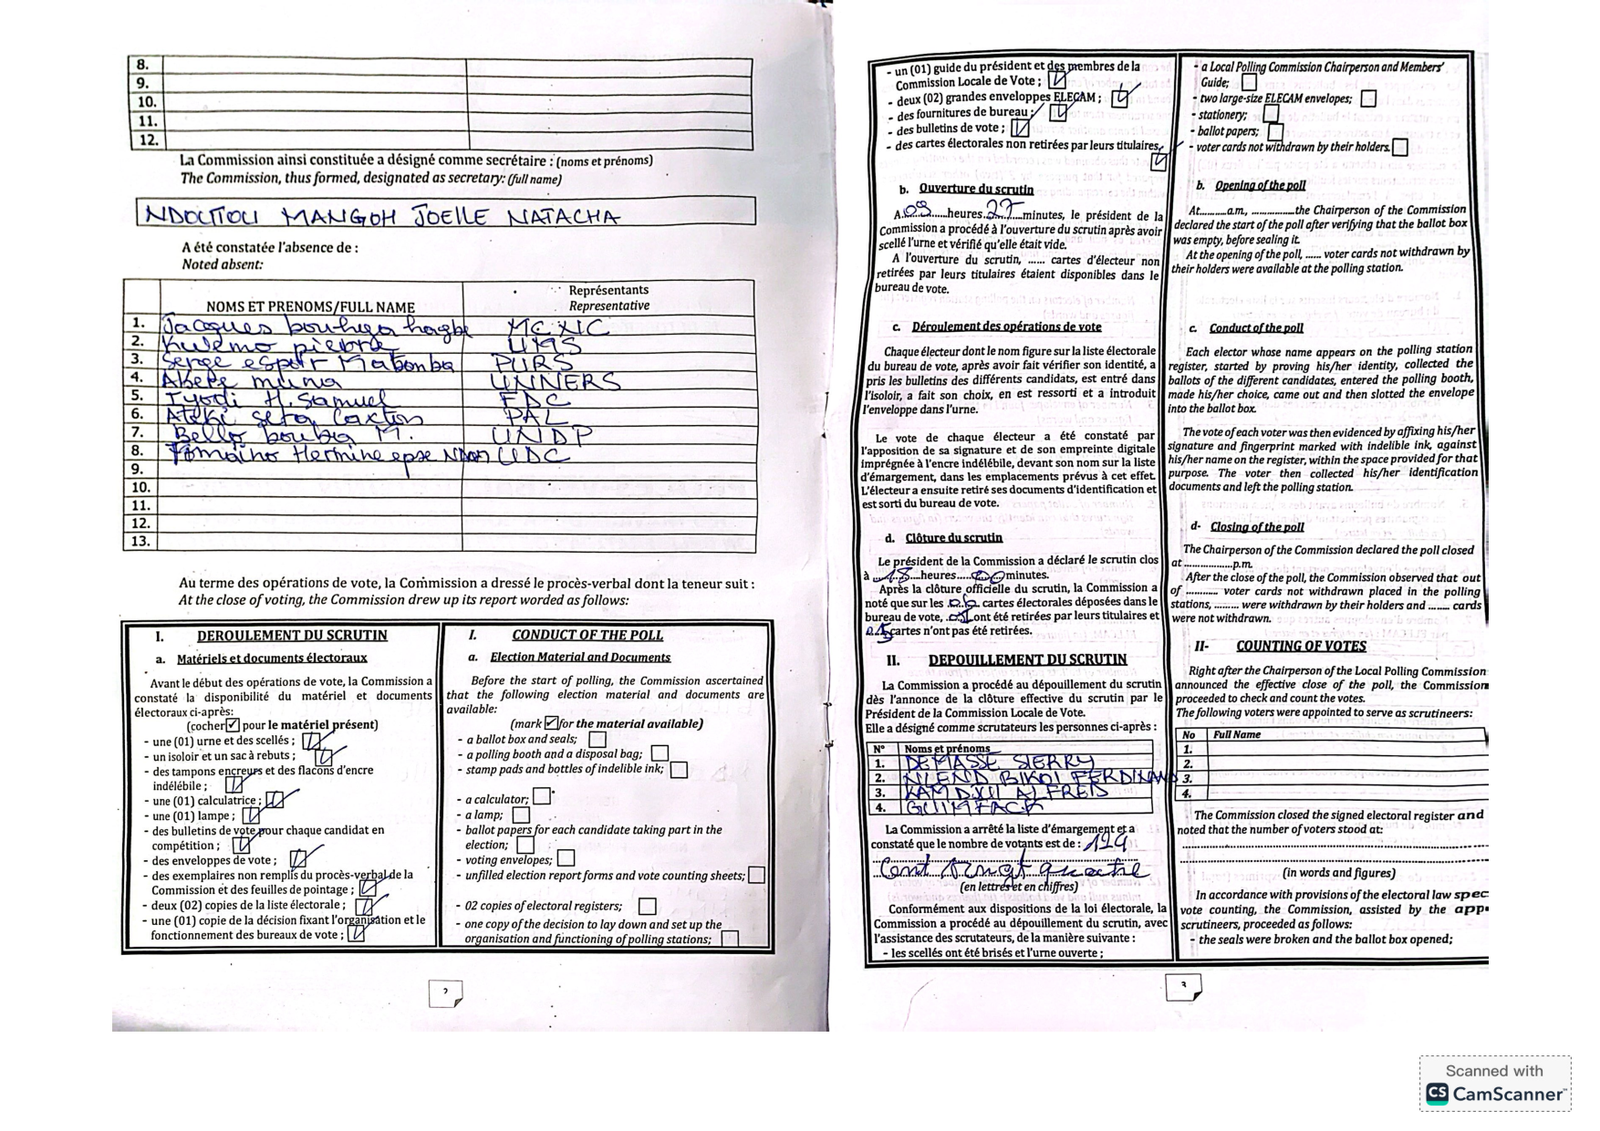 8.
9.
10.
11.
12.
La Commission ainsi constituée a désigné comme secrétaire : (noms et prénoms)
The Commission, thus formed, designated as secretary: (full name)
NDOUTOU MANGOH JOELLE NATACHA
A été constatée l'absence de :
Noted absent:
NOMS ET PRENOMS/FULL NAME
Représentants
Representative
1. Jacques bouhga hagbe
2. Kwemo pierre UMS
3. Serge espoir Matomba PURS
4. Akere muna UNIVERS
5. Iyodi H. Samuel FDC
6. Ateki seta caxton PAL
7. Bello bouba M. UNDP
8. Tomaino Hermine epse Ndam UDC
9.
10.
11.
12.
13.
Au terme des opérations de vote, la Commission a dressé le procès-verbal dont la teneur suit :
At the close of voting, the Commission drew up its report worded as follows:
I. DEROULEMENT DU SCRUTIN
a. Matériels et documents électoraux
Avant le début des opérations de vote, la Commission a
constaté la disponibilité du matériel et documents
électoraux ci-après:
(cocher ☑ pour le matériel présent)
- une (01) urne et des scellés ;
- un isoloir et un sac à rebuts ;
- des tampons encreurs et des flacons d'encre
indélébile ;
- une (01) calculatrice ;
- une (01) lampe ;
- des bulletins de vote pour chaque candidat en
compétition ;
- des enveloppes de vote ;
- des exemplaires non remplis du procès-verbal de la
Commission et des feuilles de pointage ;
- deux (02) copies de la liste électorale ;
- une (01) copie de la décision fixant l'organisation et le
fonctionnement des bureaux de vote ;
I. CONDUCT OF THE POLL
a. Election Material and Documents
Before the start of polling, the Commission ascertained
that the following election material and documents are
available:
(mark ☑ for the material available)
- a ballot box and seals;
- a polling booth and a disposal bag;
- stamp pads and bottles of indelible ink;
- a calculator;
- a lamp;
- ballot papers for each candidate taking part in the
election;
- voting envelopes;
- unfilled election report forms and vote counting sheets;
- 02 copies of electoral registers;
- one copy of the decision to lay down and set up the
organisation and functioning of polling stations;
2
- un (01) guide du président et des membres de la
Commission Locale de Vote ;
- deux (02) grandes enveloppes ELECAM ;
- des fournitures de bureau ;
- des bulletins de vote ;
- des cartes électorales non retirées par leurs titulaires.
b. Ouverture du scrutin
A 09 heures 27 minutes, le président de la
Commission a procédé à l'ouverture du scrutin après avoir
scellé l'urne et vérifié qu'elle était vide.
A l'ouverture du scrutin, ...... cartes d'électeur non
retirées par leurs titulaires étaient disponibles dans le
bureau de vote.
c. Déroulement des opérations de vote
Chaque électeur dont le nom figure sur la liste électorale
du bureau de vote, après avoir fait vérifier son identité, a
pris les bulletins des différents candidats, est entré dans
l'isoloir, a fait son choix, en est ressorti et a introduit
l'enveloppe dans l'urne.
Le vote de chaque électeur a été constaté par
l'apposition de sa signature et de son empreinte digitale
imprégnée à l'encre indélébile, devant son nom sur la liste
d'émargement, dans les emplacements prévus à cet effet.
L'électeur a ensuite retiré ses documents d'identification et
est sorti du bureau de vote.
d. Clôture du scrutin
Le président de la Commission a déclaré le scrutin clos
à 18 heures 00 minutes.
Après la clôture officielle du scrutin, la Commission a
noté que sur les 26 cartes électorales déposées dans le
bureau de vote, 01 ont été retirées par leurs titulaires et
25 cartes n'ont pas été retirées.
II. DEPOUILLEMENT DU SCRUTIN
La Commission a procédé au dépouillement du scrutin
dès l'annonce de la clôture effective du scrutin par le
Président de la Commission Locale de Vote.
Elle a désigné comme scrutateurs les personnes ci-après :
N° Noms et prénoms
1. DEMASSE SIERRY
2. NLEND BIKOI FERDINAND
3. ALFRED
4. GUIMFACK
La Commission a arrêté la liste d'émargement et a
constaté que le nombre de votants est de : 124
Cent vingt quatre
(en lettres et en chiffres)
Conformément aux dispositions de la loi électorale, la
Commission a procédé au dépouillement du scrutin, avec
l'assistance des scrutateurs, de la manière suivante :
- les scellés ont été brisés et l'urne ouverte ;
- a Local Polling Commission Chairperson and Members'
Guide;
- two large-size ELECAM envelopes;
- stationery;
- ballot papers;
- voter cards not withdrawn by their holders.
b. Opening of the poll
At..........a.m, ...............the Chairperson of the Commission
declared the start of the poll after verifying that the ballot box
was empty, before sealing it.
At the opening of the poll, ...... voter cards not withdrawn by
their holders were available at the polling station.
c. Conduct of the poll
Each elector whose name appears on the polling station
register, started by proving his/her identity, collected the
ballots of the different candidates, entered the polling booth,
made his/her choice, came out and then slotted the envelope
into the ballot box.
The vote of each voter was then evidenced by affixing his/her
signature and fingerprint marked with indelible ink, against
his/her name on the register, within the space provided for that
purpose. The voter then collected his/her identification
documents and left the polling station.
d- Closing of the poll
The Chairperson of the Commission declared the poll closed
at ..................p.m.
After the close of the poll, the Commission observed that out
of ............ voter cards not withdrawn placed in the polling
stations, ......... were withdrawn by their holders and ....... cards
were not withdrawn.
II- COUNTING OF VOTES
Right after the Chairperson of the Local Polling Commission
announced the effective close of the poll, the Commission
proceeded to check and count the votes.
The following voters were appointed to serve as scrutineers:
No Full Name
1.
2.
3.
4.
The Commission closed the signed electoral register and
noted that the number of voters stood at:
(in words and figures)
In accordance with provisions of the electoral law spec
vote counting, the Commission, assisted by the app
scrutineers, proceeded as follows:
- the seals were broken and the ballot box opened;
3
Scanned with
CS CamScanner